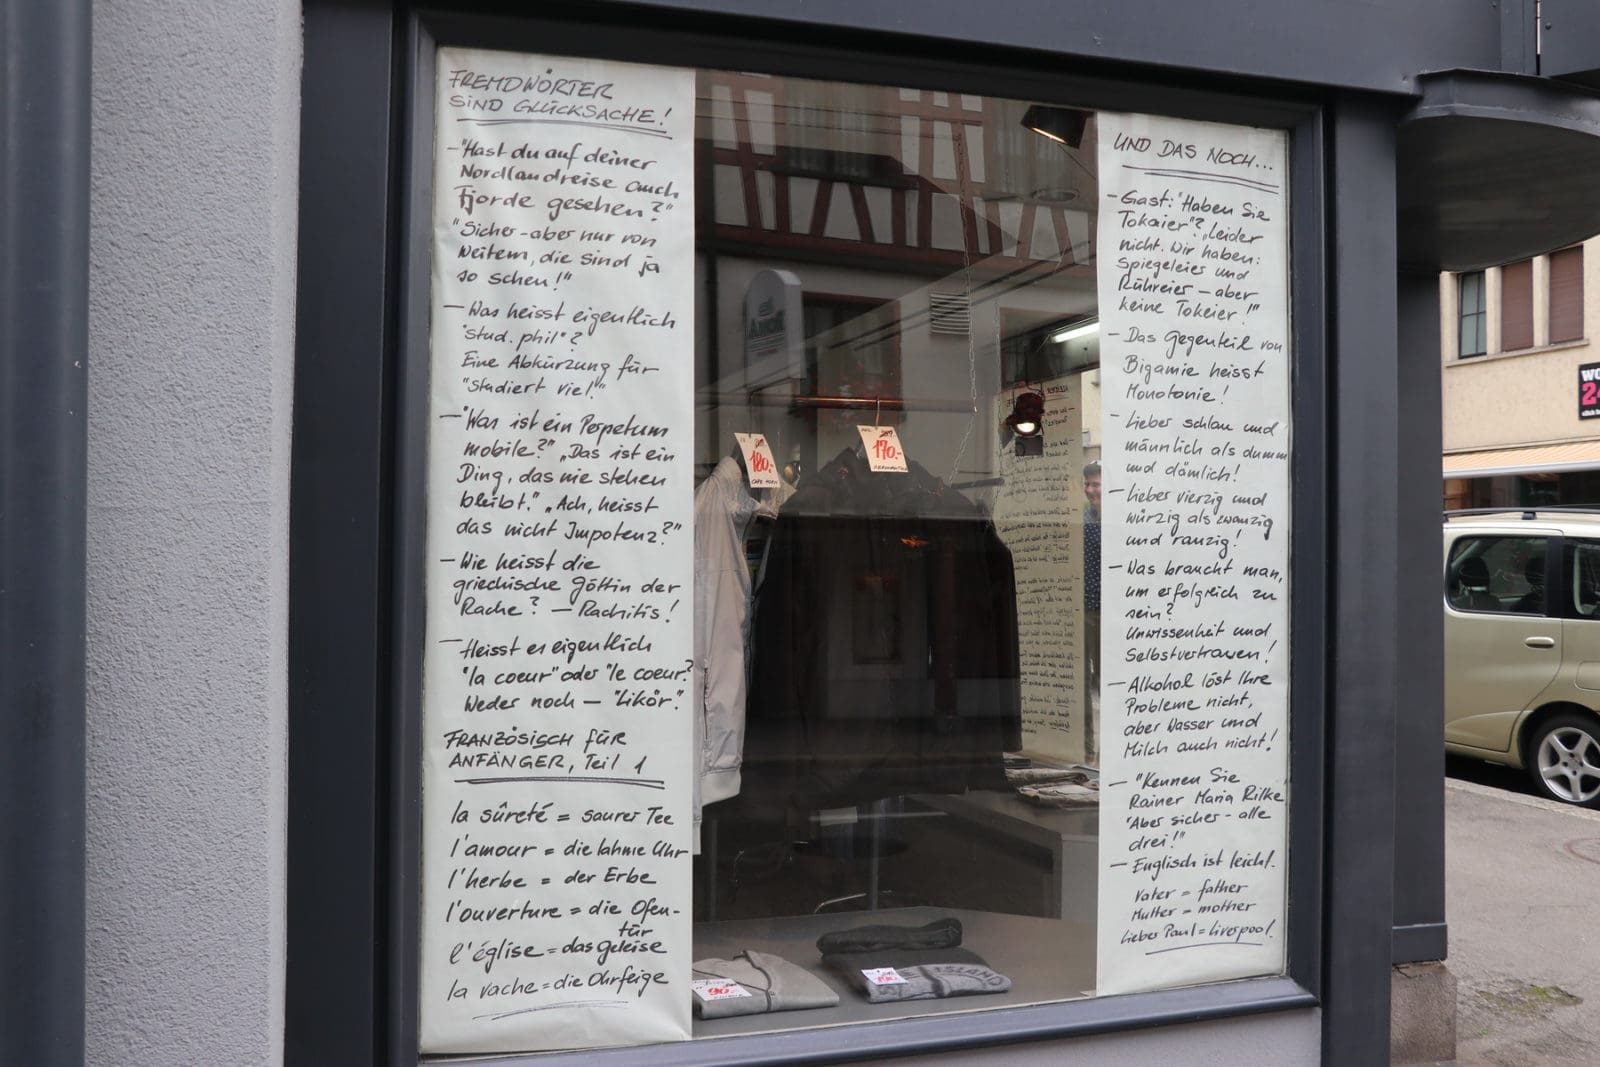 FREMDWÖRTER
SIND GLÜCKSACHE!
- "Hast du auf deiner
Nordlandreise auch
Fjorde gesehen?"
"Sicher - aber nur von
Weitem, die sind ja
so scheu!"
- Was heisst eigentlich
"stud. phil"?
Eine Abkürzung für
"Studiert viel."
- "Was ist ein Perpetum
mobile?" "Das ist ein
Ding, das nie stehen
bleibt." "Ach, heisst
das nicht Impotenz?"
- Wie heisst die
griechische Göttin der
Rache? - Rachitis!
- Heisst es eigentlich
"la coeur" oder "le coeur?
Weder noch - "Likör".
FRANZÖSISCH FÜR
ANFÄNGER, Teil 1
la sûreté = saurer Tee
l'amour = die lahme Uhr
l'herbe = der Erbe
l'ouverture = die Ofen-
tür
l'église = das Geleise
la vache = die Ohrfeige
180.-
CAPE HORN
170.-
90.-
ISLAND
UND DAS NOCH...
- Gast: "Haben Sie
Tokaier"? "Leider
nicht. Wir haben:
Spiegeleier und
Rühreier - aber
keine Tokeier!"
- Das Gegenteil von
Bigamie heisst
Monotonie!
- Lieber schlau und
männlich als dumm
und dämlich!
- Lieber vierzig und
würzig als zwanzig
und ranzig!
- Was braucht man,
um erfolgreich zu
sein?
Unwissenheit und
Selbstvertrauen!
- Alkohol löst Ihre
Probleme nicht,
aber Wasser und
Milch auch nicht!
- "Kennen Sie
Rainer Maria Rilke"
"Aber sicher - alle
drei!"
- Englisch ist leicht.
Vater = father
Mutter = mother
Lieber Paul = Liverpool.